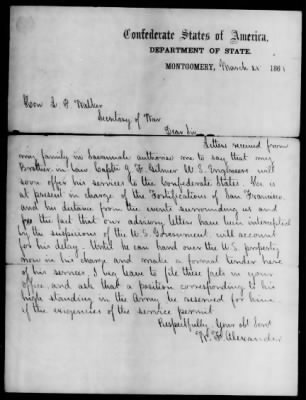 Confederate States of America,
DEPARTMENT OF STATE.
MONTGOMERY, March 25 1861
Hon L. P. Walker
Secretary of War
Dear Sir
Letters received from
my family in Savannah authorise me to say that my
Brother in law Captn J. F. Gilmer U.S. Engineers will
soon offer his services to the Confederate States. He is
at present in charge of the Fortifications of San Francisco,
and his distance from the events surrounding us and
the fact that our advisory letters have been intercepted
by the suspicions of the U.S. Government will account
for his delay. Until he can hand over the U.S. property
now in his charge and make a formal tender here
of his services, I beg leave to file these facts in your
office, and ask that a position corresponding to his
high standing in the Army be reserved for him
if the exigencies of the service permit
Respectfully Your obt Servt
W. F. Alexander